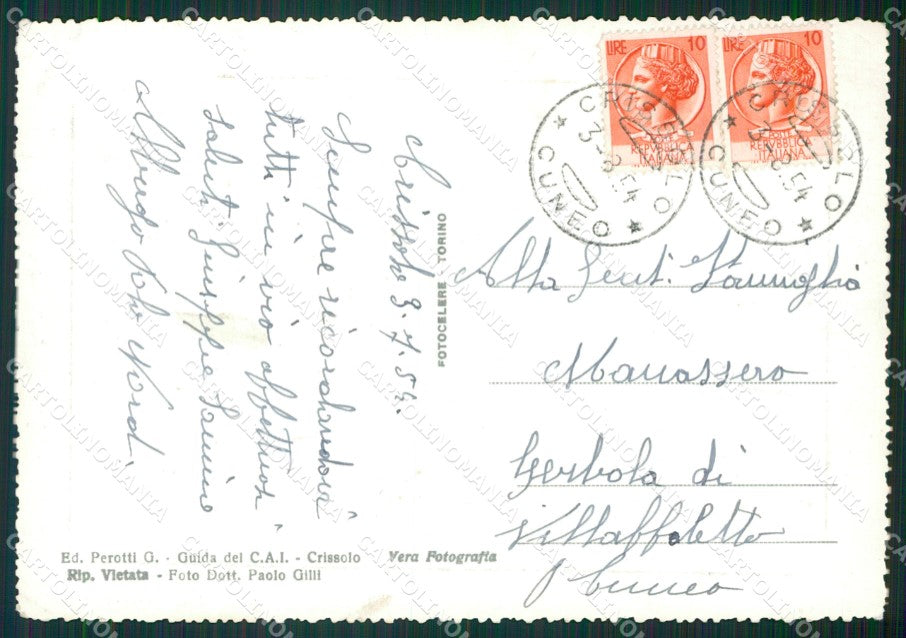 LIRE 10
POSTE
REPVBBLICA
ITALIANA
LIRE 10
POSTE
REPVBBLICA
ITALIANA
CRISSOLO
3-8 54
★ CUNEO ★
CRISSOLO
3-8 54
★ CUNEO ★
Crissolo 3.7.54.
Sempre ricordandovi
tutti in vio affettuosi
saluti Giuseppe
Albergo Polo Nord.
FOTOCELERE TORINO
Alla Gent. Famiglia
Manassero
Gerbola di
Villaffoletto
Cuneo
Ed. Perotti G. - Guida del C.A.I. - Crissolo
Vera Fotografia
Rip. Vietata - Foto Dott. Paolo Gilli
CARTOLINOMANIA